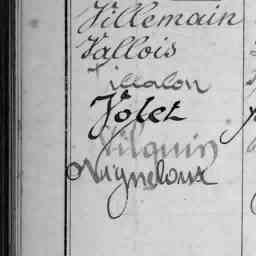 Villemain
Vallois
Villalon
Volet
Vilquin
Vigneloux